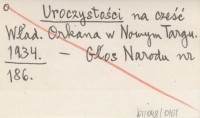 Uroczystości na cześć
Wład. Orkana w Nowym Targu.
1934. — Głos Narodu nr
186.